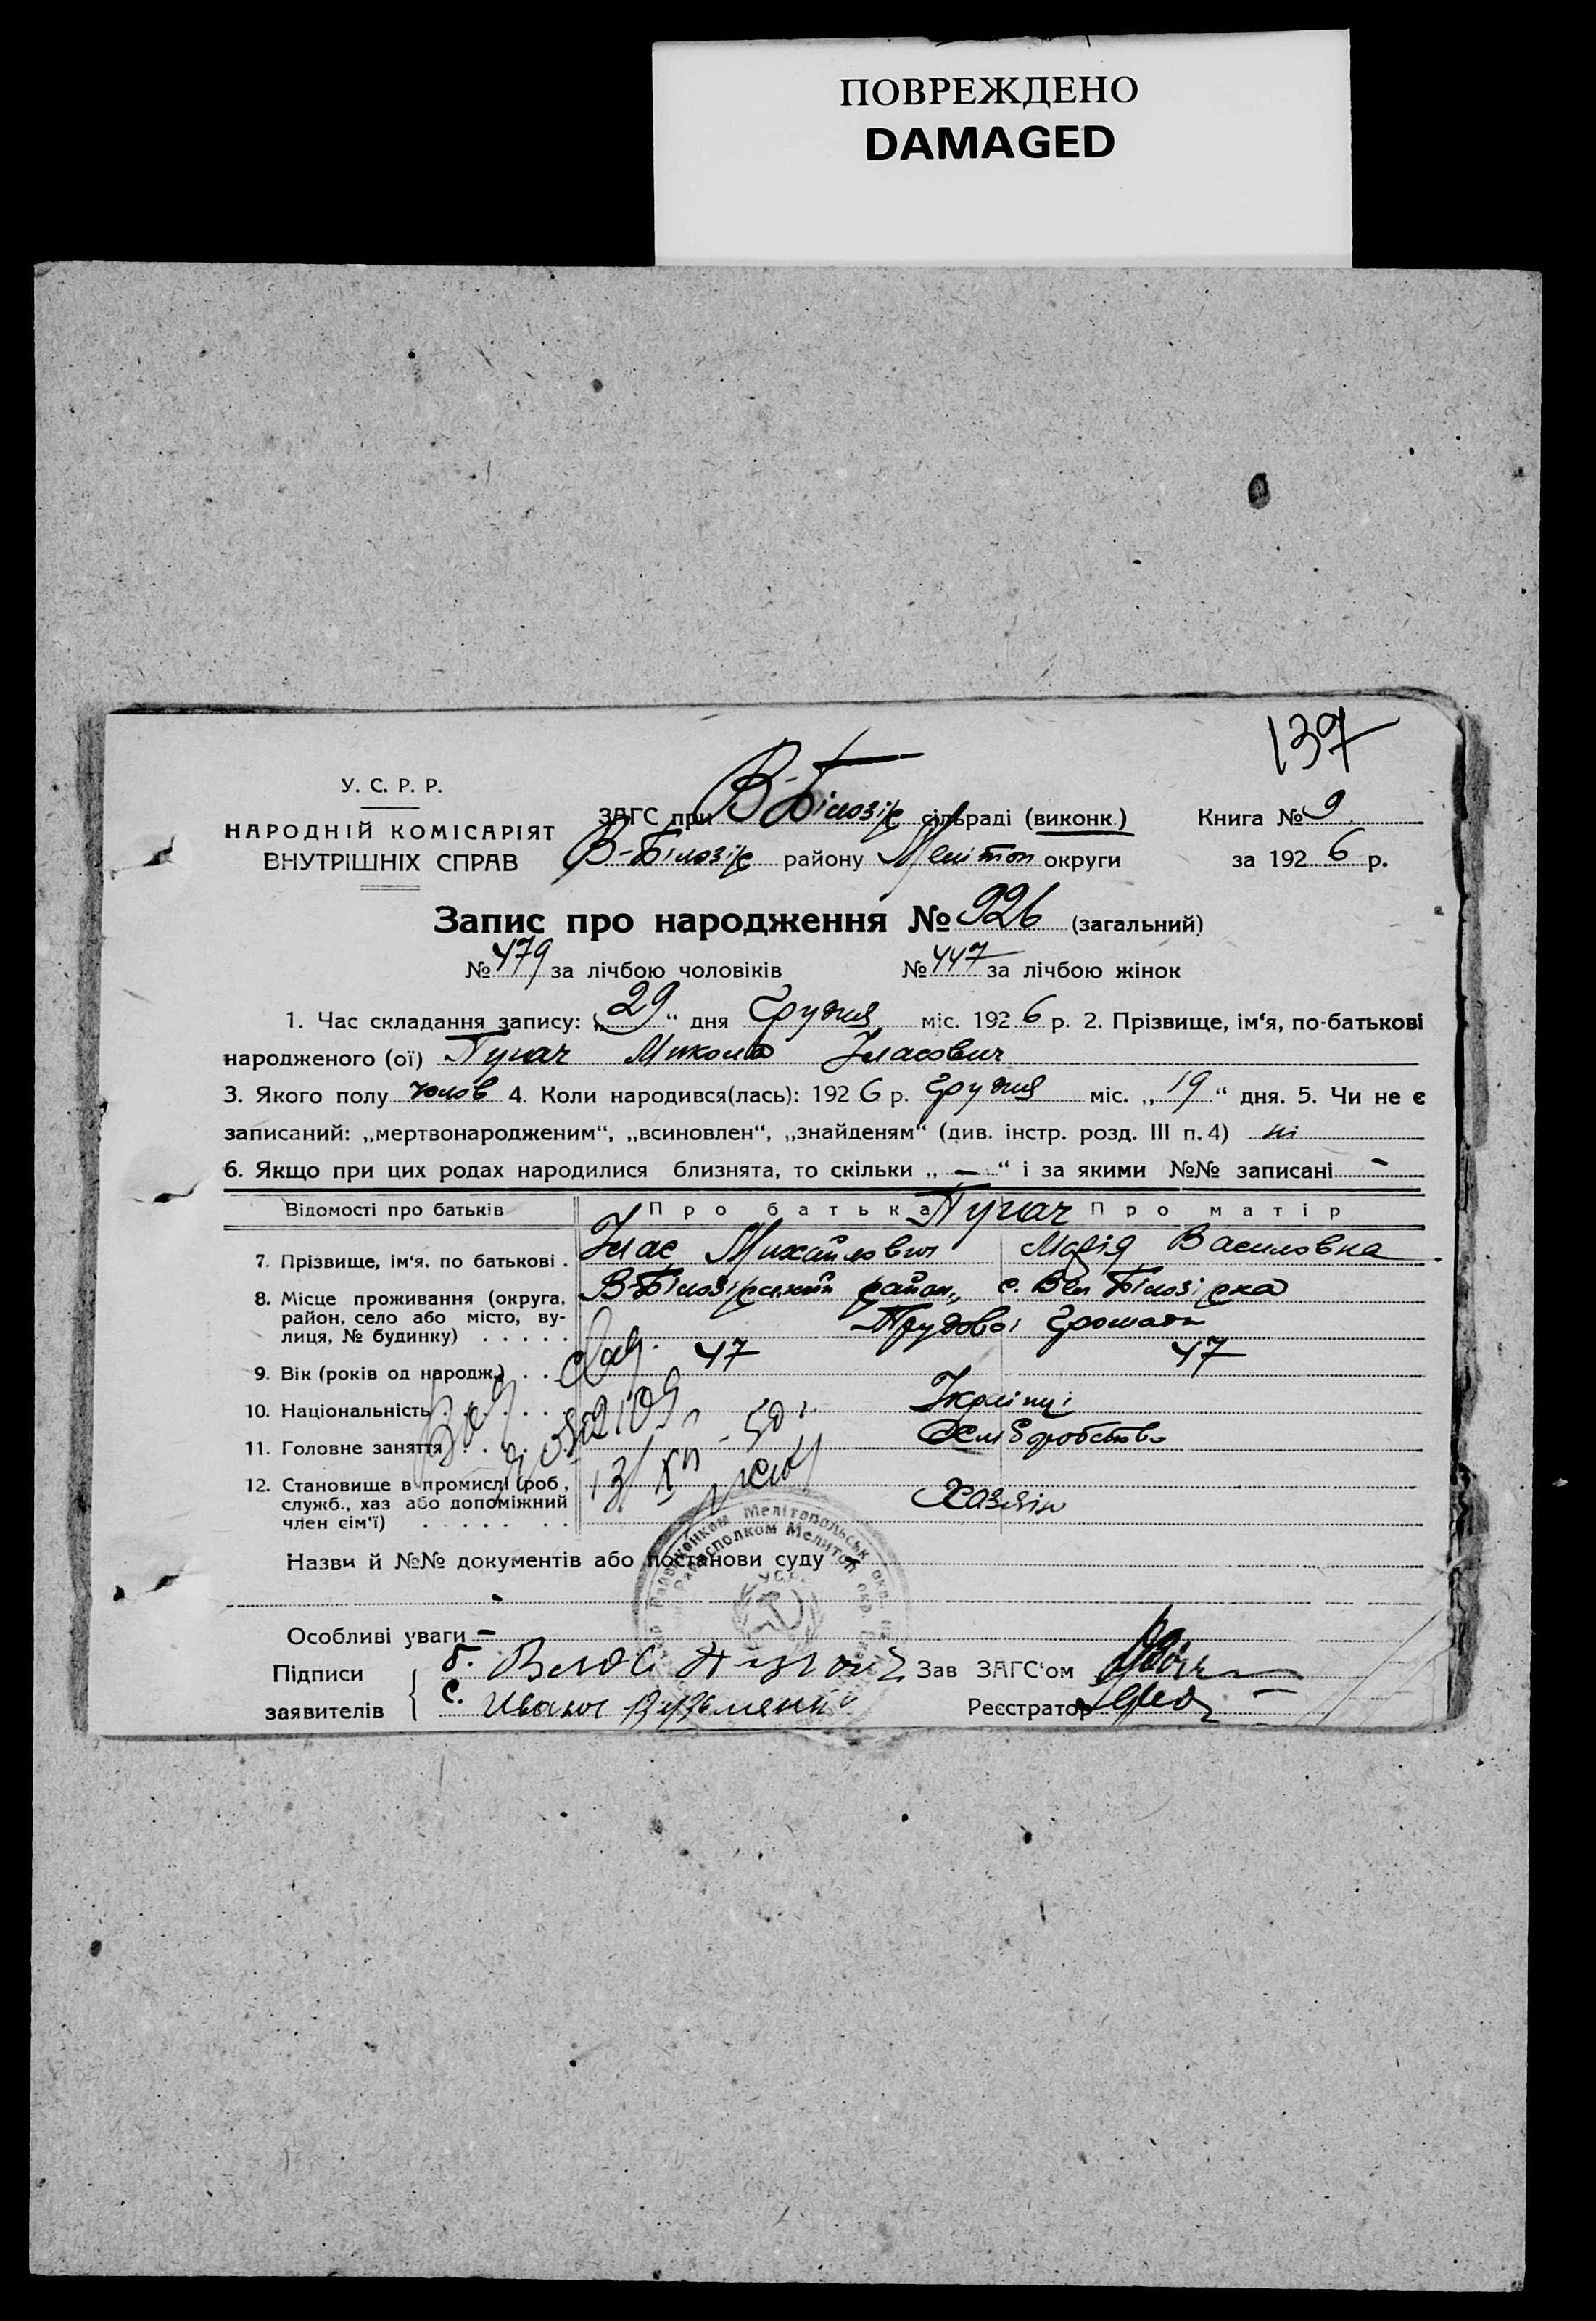 ПОВРЕЖДЕНО
DAMAGED
137
У. С. Р. Р.
НАРОДНІЙ КОМІСАРІЯТ
ВНУТРІШНІХ СПРАВ
ЗАГС при В-Білозір сільраді (виконк.)
В-Білозір району Меліт оп округи
Книга № 9
за 192 6 р.
Запис про народження № 926 (загальний)
№ 479 за лічбою чоловіків № 447 за лічбою жінок
1. Час складання запису: „29“ дня Грудня міс. 192 6 р. 2. Прізвище, ім'я, по-батькові
народженого (ої) Пугач Микола Власович
3. Якого полу чолов 4. Коли народився(лась): 192 6 р. Грудня міс. „19“ дня. 5. Чи не є
записаний: „мертвонародженим“, „всиновлен“, „знайденям“ (див. інстр. розд. III п. 4) ні
6. Якщо при цих родах народилися близнята, то скільки „ — “ і за якими №№ записані -
Відомості про батьків Про батька Пугач Про матір
7. Прізвище, ім'я. по батькові . Влас Михайлович Марія Василовна
8. Місце проживання (округа, В-Білозірський район, с. Вел Білозірка
район, село або місто, ву-
лиця, № будинку) . . . . . Трудової Громади
9. Вік (років од народж.) . . . 47 47
10. Національність . . . . . . Українці
11. Головне заняття . . . . . Хліборобство
12. Становище в промислі (роб.,
служб., хаз або допоміжний Хазяїн
член сім'ї) . . . . . . .
13/XII - 50 г.
Назви й №№ документів або постанови суду -
Особливі уваги -
Підписи б. Влас Пугач Зав ЗАГС'ом
заявителів с. Иван Реєстратор